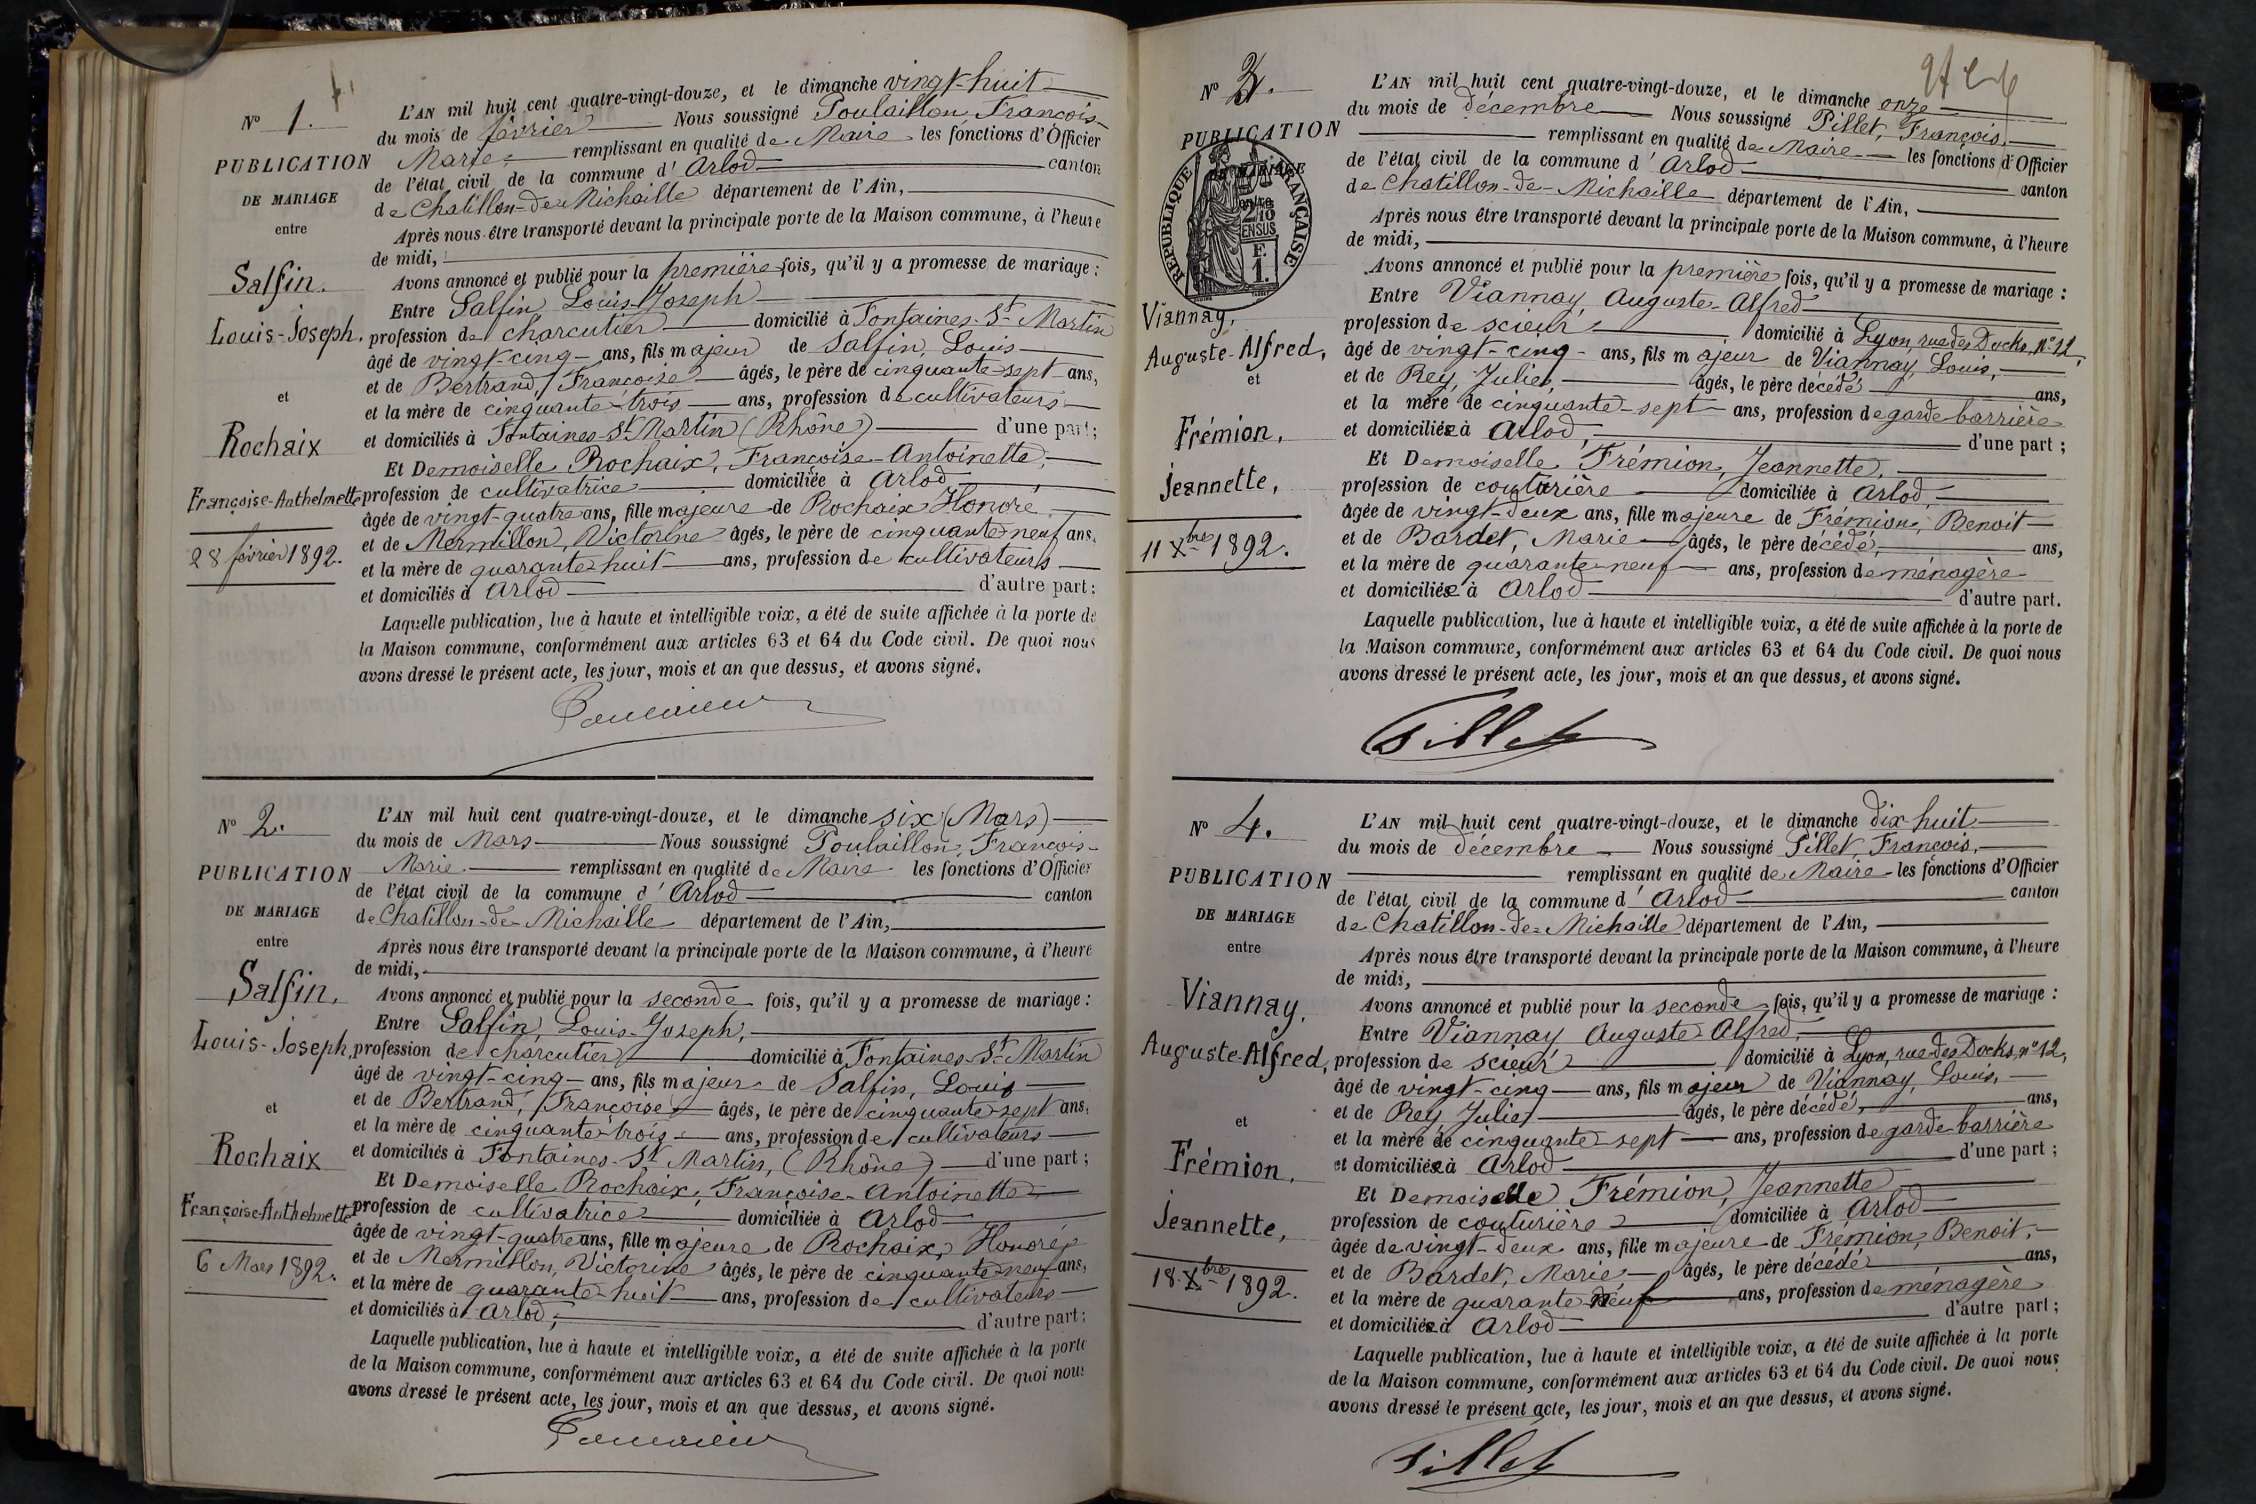 N° 1.
PUBLICATION
DE MARIAGE
entre
Salfin.
Louis-Joseph.
et
Rochaix
Françoise-Anthelmette
28 février 1892.
L'AN mil huit cent quatre-vingt-douze, et le dimanche vingt-huit
du mois de février Nous soussigné Poulaillon, François-
Marie remplissant en qualité de Maire les fonctions d'Officier
de l'état civil de la commune d'Arlod canton
de Chatillon-de-Michaille département de l'Ain,
Après nous être transporté devant la principale porte de la Maison commune, à l'heure
de midi,
Avons annoncé et publié pour la première fois, qu'il y a promesse de mariage :
Entre Salfin Louis-Joseph
profession de charcutier domicilié à Fontaines-St-Martin
âgé de vingt-cinq ans, fils majeur de Salfin, Louis
et de Bertrand, Françoise âgés, le père de cinquante-sept ans,
et la mère de cinquante-trois ans, profession de cultivateurs
et domiciliés à Fontaines-St Martin (Rhône) d'une part;
Et Demoiselle Rochaix, Françoise-Antoinette,
profession de cultivatrice domiciliée à Arlod
âgée de vingt-quatre ans, fille majeure de Rochaix Honoré
et de Mermillon, Victorine âgés, le père de cinquante-neuf ans,
et la mère de quarante-huit ans, profession de cultivateurs
et domiciliés à Arlod d'autre part;
Laquelle publication, lue à haute et intelligible voix, a été de suite affichée à la porte de
la Maison commune, conformément aux articles 63 et 64 du Code civil. De quoi nous
avons dressé le présent acte, les jour, mois et an que dessus, et avons signé.
N° 2.
PUBLICATION
DE MARIAGE
entre
Salfin.
Louis-Joseph,
et
Rochaix
Françoise-Anthelmette
6 Mars 1892.
L'AN mil huit cent quatre-vingt-douze, et le dimanche six (Mars)
du mois de Mars Nous soussigné Poulaillon, François-
Marie remplissant en qualité de Maire les fonctions d'Officier
de l'état civil de la commune d'Arlod canton
de Chatillon-de-Michaille département de l'Ain,
Après nous être transporté devant la principale porte de la Maison commune, à l'heure
de midi,
Avons annoncé et publié pour la seconde fois, qu'il y a promesse de mariage :
Entre Salfin, Louis-Joseph,
profession de charcutier domicilié à Fontaines-St-Martin
âgé de vingt-cinq ans, fils majeur de Salfin, Louis
et de Bertrand, Françoise âgés, le père de cinquante-sept ans,
et la mère de cinquante-trois ans, profession de cultivateurs
et domiciliés à Fontaines-St Martin, (Rhône) d'une part ;
Et Demoiselle Rochaix, Françoise-Antoinette
profession de cultivatrice domiciliée à Arlod
âgée de vingt-quatre ans, fille majeure de Rochaix, Honoré,
et de Mermillon, Victorine âgés, le père de cinquante-neuf ans,
et la mère de quarante-huit ans, profession de cultivateurs
et domiciliés à Arlod, d'autre part;
Laquelle publication, lue à haute et intelligible voix, a été de suite affichée à la porte
de la Maison commune, conformément aux articles 63 et 64 du Code civil. De quoi nous
avons dressé le présent acte, les jour, mois et an que dessus, et avons signé.
N° 3.
PUBLICATION
DE MARIAGE
entre
RÉPUBLIQUE FRANÇAISE
2/10
EN SUS
F.
1.
Viannay,
Auguste-Alfred,
et
Frémion,
Jeannette,
11 Xbre 1892.
L'AN mil huit cent quatre-vingt-douze, et le dimanche onze
du mois de décembre Nous soussigné Pillet, François,
remplissant en qualité de Maire les fonctions d'Officier
de l'état civil de la commune d'Arlod canton
de Chatillon-de-Michaille département de l'Ain,
Après nous être transporté devant la principale porte de la Maison commune, à l'heure
de midi,
Avons annoncé et publié pour la première fois, qu'il y a promesse de mariage :
Entre Viannay, Auguste-Alfred
profession de scieur domicilié à Lyon, rue des Docks, n° 12,
âgé de vingt-cinq ans, fils majeur de Viannay, Louis,
et de Rey, Julie, âgés, le père décédé ans,
et la mère de cinquante-sept ans, profession de garde barrière
et domiciliée à Arlod, d'une part ;
Et Demoiselle Frémion, Jeannette,
profession de couturière domiciliée à Arlod,
âgée de vingt-deux ans, fille majeure de Frémion, Benoit
et de Bardet, Marie âgés, le père décédé, ans,
et la mère de quarante-neuf ans, profession de ménagère
et domiciliée à Arlod d'autre part.
Laquelle publication, lue à haute et intelligible voix, a été de suite affichée à la porte de
la Maison commune, conformément aux articles 63 et 64 du Code civil. De quoi nous
avons dressé le présent acte, les jour, mois et an que dessus, et avons signé.
Pillet
N° 4.
PUBLICATION
DE MARIAGE
entre
Viannay,
Auguste-Alfred,
et
Frémion,
Jeannette,
18 Xbre 1892.
L'AN mil huit cent quatre-vingt-douze, et le dimanche dix-huit
du mois de décembre Nous soussigné Pillet, François,
remplissant en qualité de Maire les fonctions d'Officier
de l'état civil de la commune d'Arlod canton
de Chatillon-de-Michaille département de l'Ain,
Après nous être transporté devant la principale porte de la Maison commune, à l'heure
de midi,
Avons annoncé et publié pour la seconde fois, qu'il y a promesse de mariage :
Entre Viannay Auguste-Alfred,
profession de scieur domicilié à Lyon, rue des Docks, n° 12,
âgé de vingt-cinq ans, fils majeur de Viannay, Louis,
et de Rey, Julie, âgés, le père décédé, ans,
et la mère de cinquante-sept ans, profession de garde barrière
et domiciliée à Arlod d'une part ;
Et Demoiselle Frémion, Jeannette
profession de couturière domiciliée à Arlod
âgée de vingt-deux ans, fille majeure de Frémion, Benoit,
et de Bardet, Marie, âgés, le père décédé ans,
et la mère de quarante-neuf ans, profession de ménagère
et domiciliée à Arlod d'autre part ;
Laquelle publication, lue à haute et intelligible voix, a été de suite affichée à la porte
de la Maison commune, conformément aux articles 63 et 64 du Code civil. De quoi nous
avons dressé le présent acte, les jour, mois et an que dessus, et avons signé.
Pillet